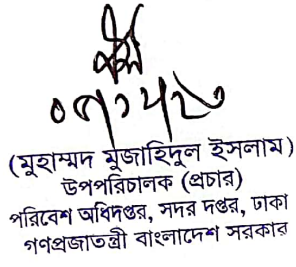 (মুহাম্মদ মুজাহিদুল ইসলাম)
উপপরিচালক (প্রচার)
পরিবেশ অধিদপ্তর, সদর দপ্তর, ঢাকা
গণপ্রজাতন্ত্রী বাংলাদেশ সরকার